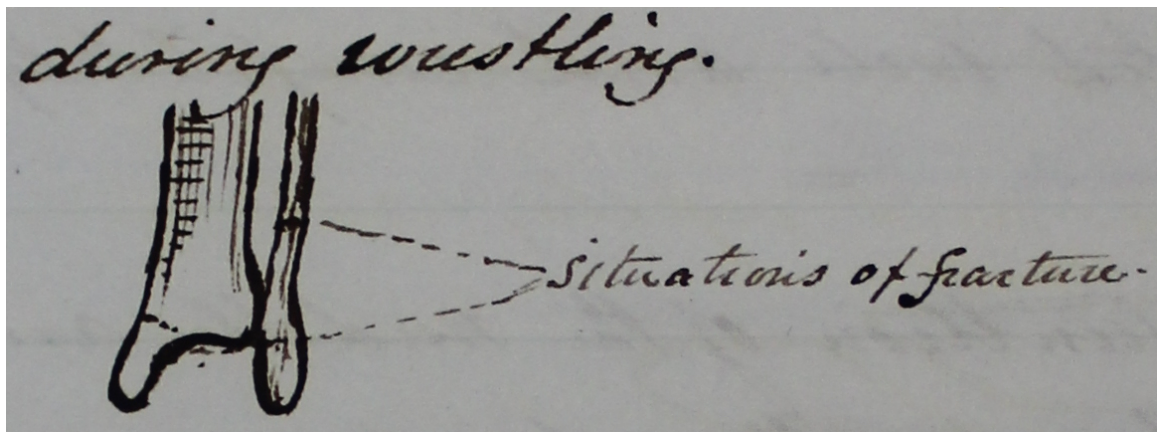 during wrestling.
situations of fracture.